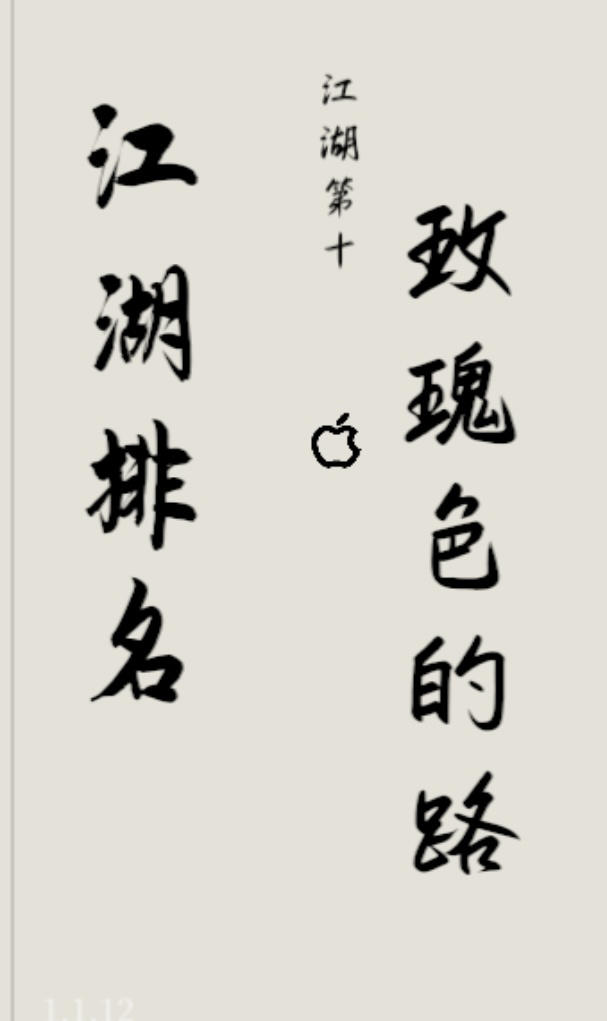 玫瑰色的路
江湖第十
江湖排名
1.1.12